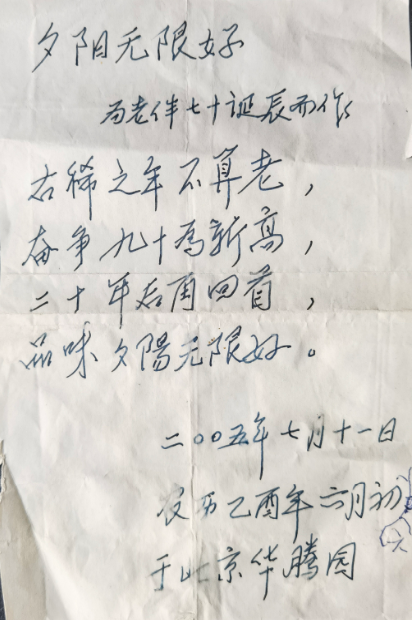 夕阳无限好
为老伴七十诞辰而作
古稀之年不算老，
奋争九十为新高，
二十年后再回首，
品味夕陽无限好。
二〇〇五年七月十一日
农历乙酉年六月初
于北京华腾园